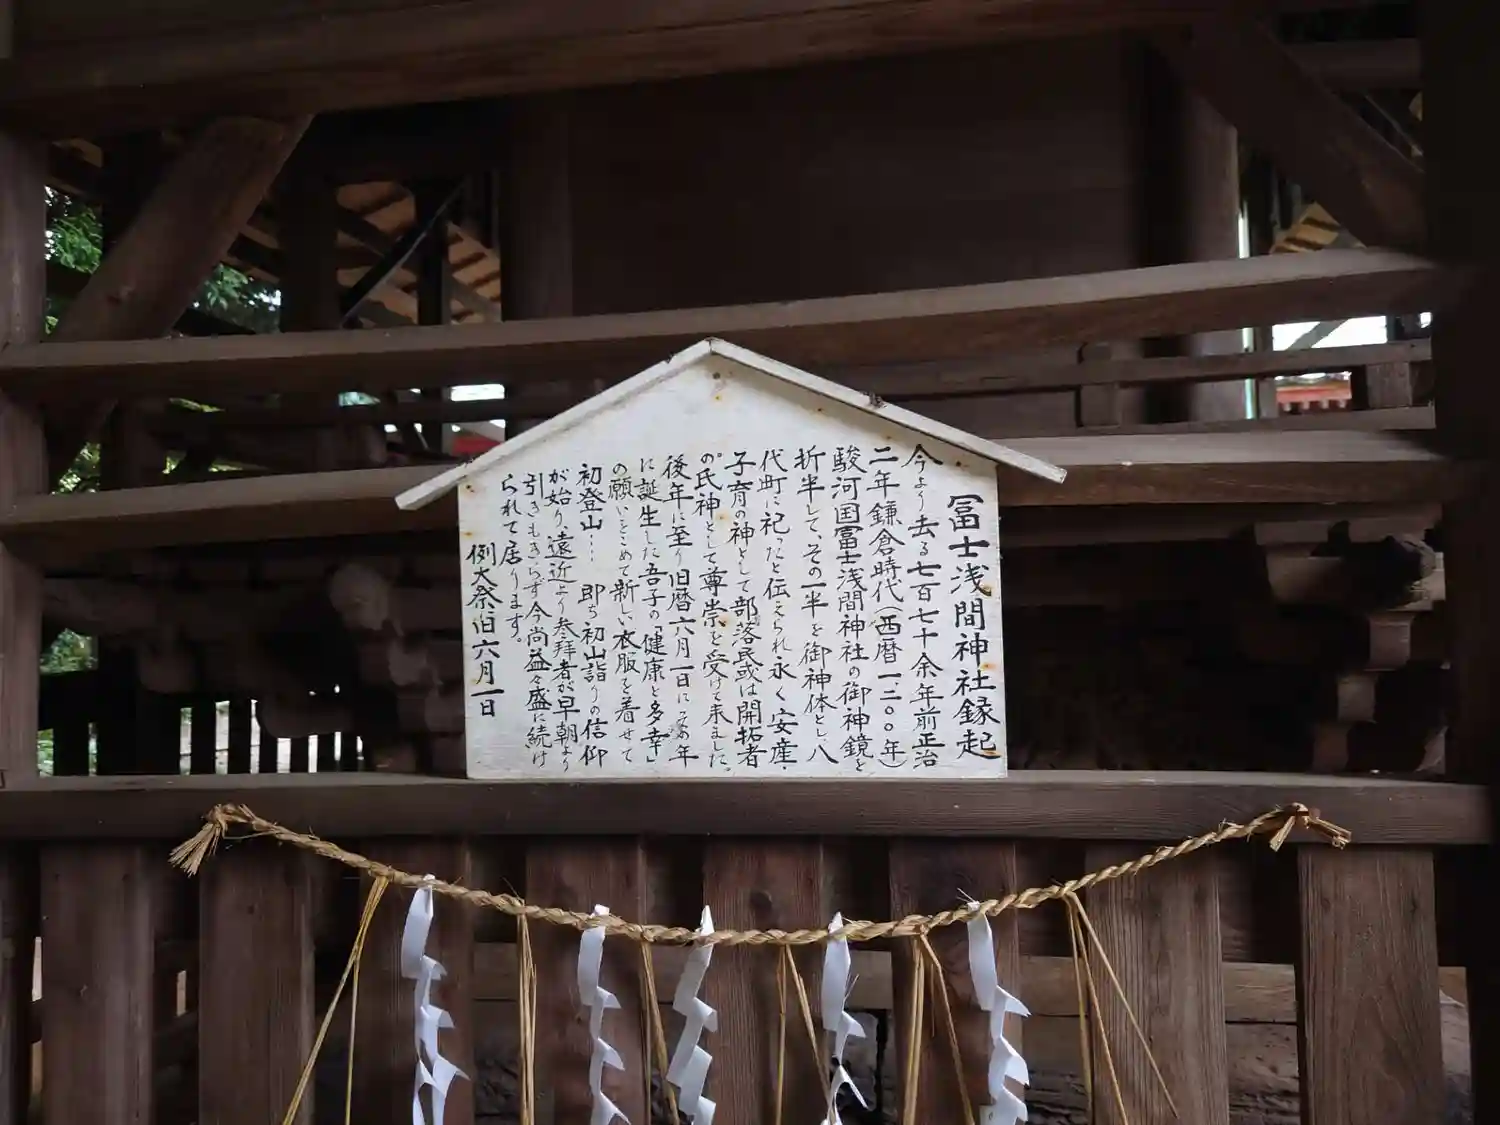 冨士浅間神社縁起
今より去る七百七十余年前正治
二年鎌倉時代(西暦一二〇〇年)
駿河国冨士浅間神社の御神鏡を
折半して、その一半を御神体とし、八
代町に祀ったと伝えられ永く安産・
子育の神として部落民或は開拓者
の氏神として尊崇を受けて来ました。
後年に至り旧暦六月一日にその年
に誕生した吾子の「健康と多幸」
の願いをこめて新しい衣服を着せて
初登山… 即ち初山詣りの信仰
が始り、遠近より参拝者が早朝より
引きもきらず今尚益々盛に続け
られて居ります。
例大祭旧六月一日